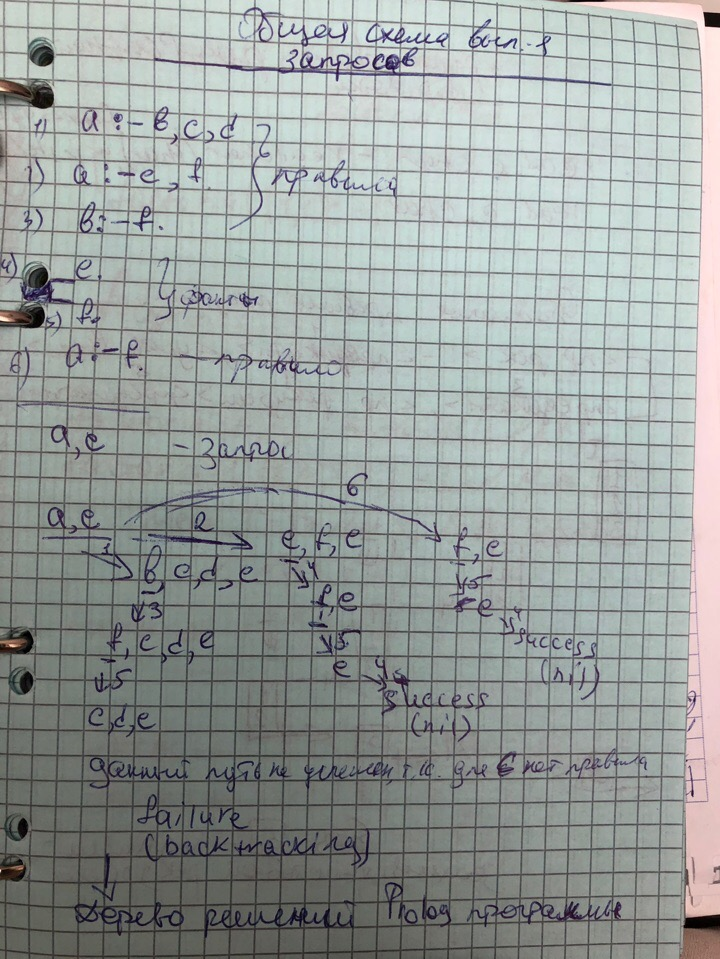 Общая схема вып.-я
запросов
1) a :- b, c, d
2) a :- e, f.
3) b :- f.
правила
4) e.
5) f.
факты
6) a :- f. — правило
a, e - запрос
6
a, e 2 e, f, e f, e
1 b, c, d, e 4 5
3 f, e e 4
f, c, d, e 5 success
5 e 4 success (nil)
c, d, e (nil)
данный путь не успешен, т.к. для c нет правила
failure
(backtracking)
Дерево решений Prolog программы